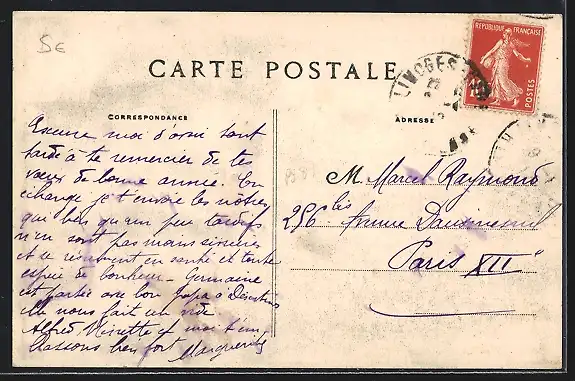 5€
CARTE POSTALE
REPUBLIQUE FRANÇAISE
10
POSTES
LIMOGES
CORRESPONDANCE
ADRESSE
Excuse moi d'avoir tant
tardé à te remercier de tes
vœux de bonne année. En
échange je t'envoie les nôtres
qui bien qu'un peu tardifs
n'en sont pas moins sincères
et se résument en santé et toute
espèce de bonheur - Germaine
est partie avec bon papa à
elle nous fait un vide
Alfred et moi t'em-
brassons bien fort Marguerite
M. Marcel Raymond
256 bis Avenue Daumesnil
Paris XII"